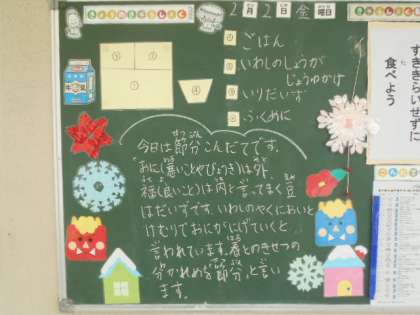 きょうのきゅうしょく
2月2日金曜日
① ごはん
② いわしのしょうが
じょうゆかけ
③ いりだいず
④ ふくめに
今日は節分こんだてです。
"おに(悪いことやびょうき)は外、
福(良いこと)は内"と言ってまく豆
はだいずです。いわしのやくにおいと
けむりでおにがにげていくと
言われています。春とのきせつの
分かれめを節分と言い
ます。
すききらいせずに
食べよう